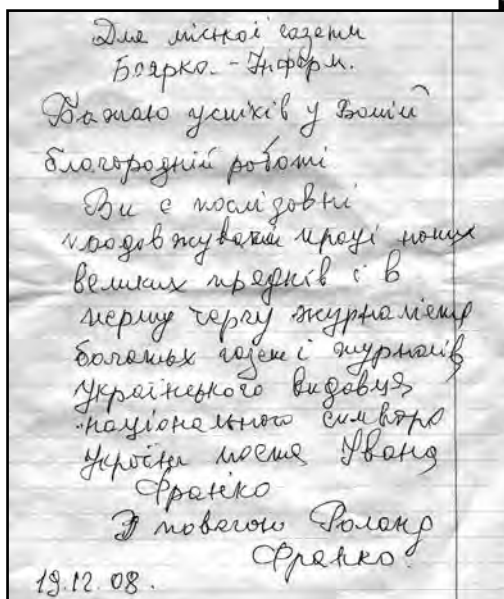 Для міської газети
Боярка - Інформ.
Бажаю успіхів у Вашій
благородній роботі
Ви є послідовні
продовжувачі праці наших
великих предків і в
першу чергу журналіста
багатьох газет і журналів
українського видавця,
національного символа
України поета Івана
Франко
З повагою Роланд
Франко.
19.12.08.